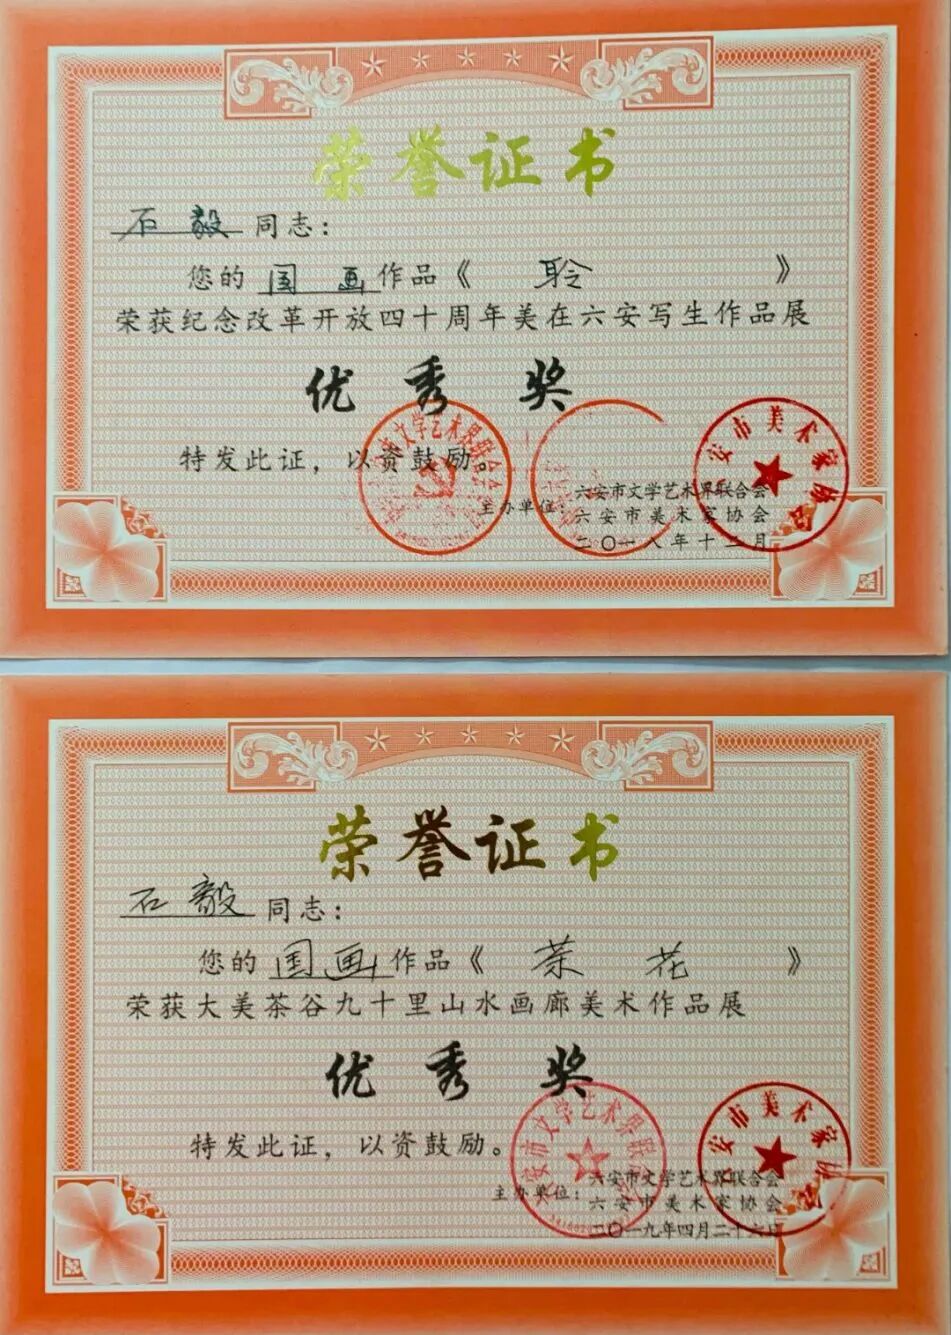 荣誉证书
石毅同志：
您的国画作品《聆》
荣获纪念改革开放四十周年美在六安写生作品展
优秀奖
特发此证，以资鼓励。
主办单位：六安市文学艺术界联合会
六安市美术家协会
二〇一八年十二月
安市美术家协会
荣誉证书
石毅同志：
您的国画作品《茶花》
荣获大美茶谷九十里山水画廊美术作品展
优秀奖
特发此证，以资鼓励。
主办单位：六安市文学艺术界联合会
六安市美术家协会
二〇一九年四月二十六日
安市文学艺术界联
安市美术家协会